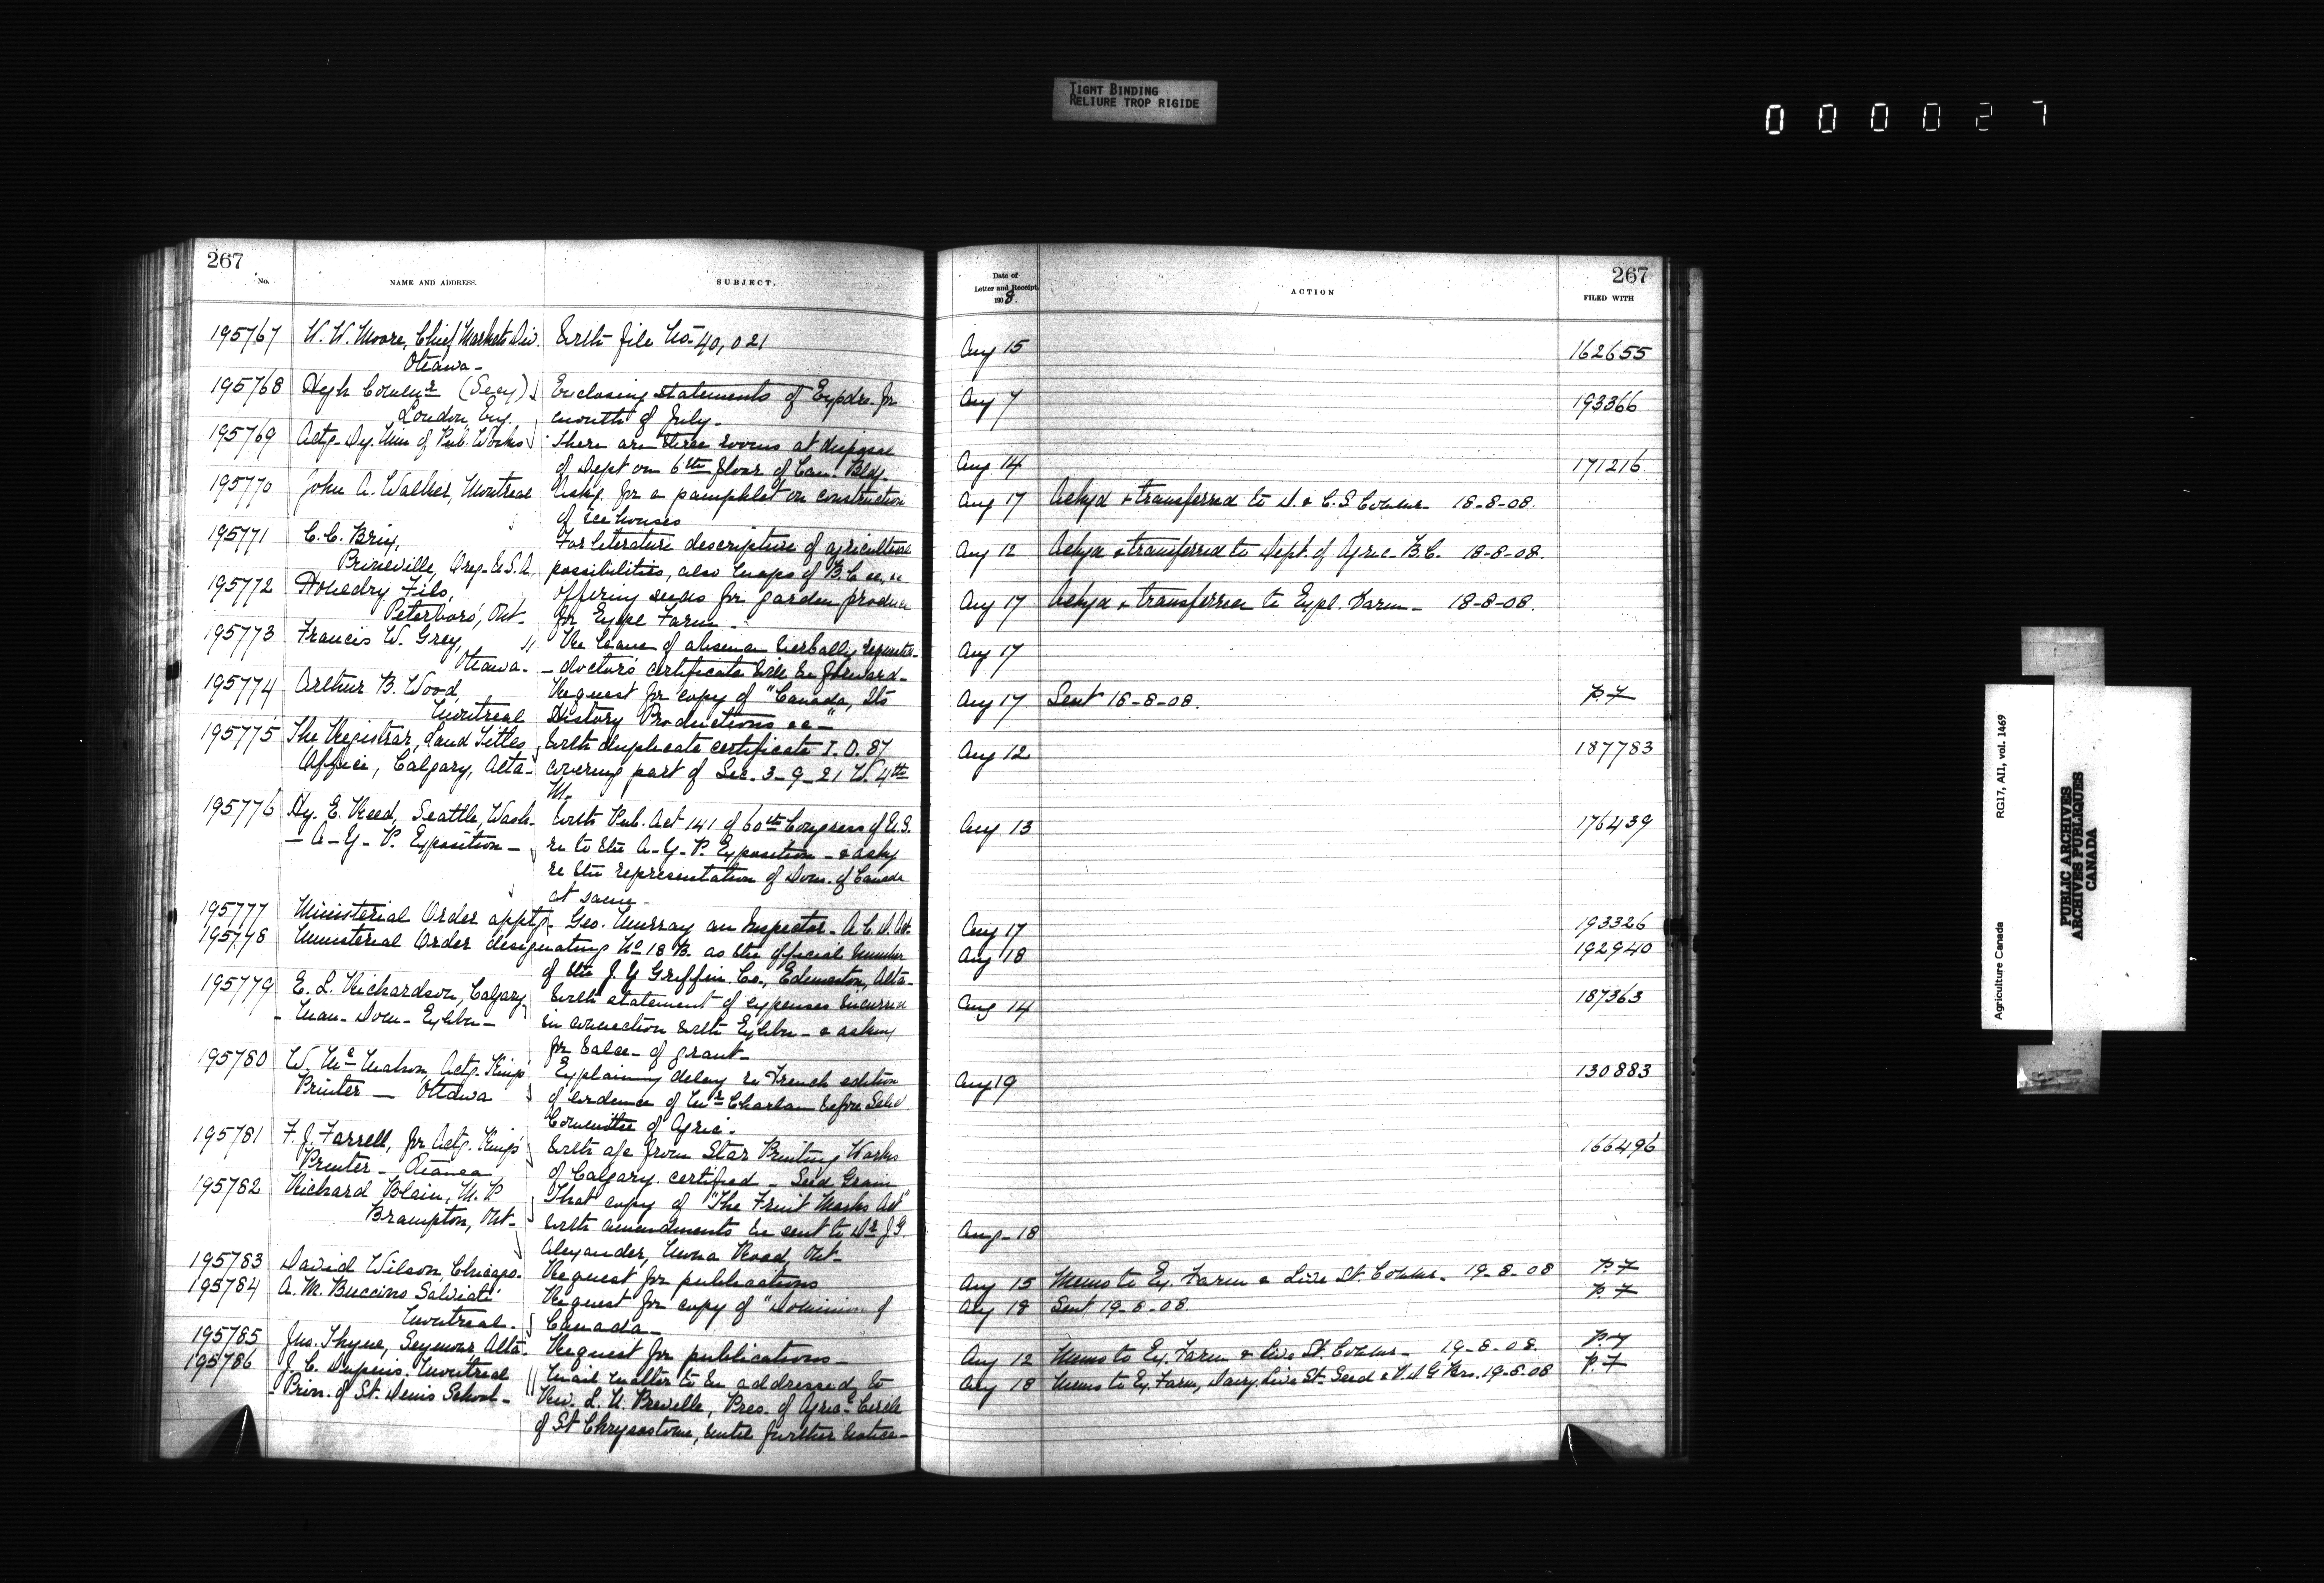 TIGHT BINDING
RELIURE TROP RIGIDE
000027
267
No.
NAME AND ADDRESS.
SUBJECT.
195767 W. W. Moore, Chief Markets Div. With file No 40,021
Ottawa-
195768 High Commr (Secy) Enclosing statements of Expdre. for
London, Eng. month of July-
195769 Actg. Dy. Min of Pub. Works There are three rooms at disposal
of Dept on 6th floor of Can. Bldg.
195770 John A. Walker, Montreal Askg. for a pamphlet on construction
of ice houses
195771 C. C. Brix, For literature descriptive of agricultural
Prineville, Oreg. U.S.A. possibilities, also maps of B.C &c, &c
195772 Houedry Fils, Offering seeds for garden produce
Peterboro', Ont- for Exptl Farm-
195773 Francis W. Grey, Re leave of absence verbally requested-
Ottawa- - doctor's certificate will be forward-
195774 Arthur B. Wood, Request for copy of "Canada, Its
Montreal History Productions &c-"
195775 The Registrar, Land Titles With duplicate certificate I.O. 87
Office, Calgary, Alta- covering part of Sec. 3-9-21 W. 4th
M-
195776 Hy. E. Reed, Seattle, Wash- With Pub. Act 141 of 60th Congress of U.S.
- A-Y-P. Exposition - re to the A-Y-P. Exposition - & askg
re the representation of Dom. of Canada
at same-
195777 Ministerial Order apptg- Geo. Murray an Inspector- A.C.D. Act-
195778 Ministerial Order designating No 18 B. as the official number
of the J. Y Griffin Co., Edmonton, Alta-
195779 E. L. Richardson, Calgary With statement of expenses incurred
- Man- Dom- Exhbn- in connection with Exhbn- & asking
for balce- of grant-
195780 W. McMahon, Actg. King's Explaining delay re French edition
Printer - Ottawa of evidence of Mr Charlan before Select
Committee of Agric.
195781 F. J. Farrell, for Actg. King's With a/c from Star Printing Works
Printer - Ottawa of Calgary. certified - Seed Grain
195782 Richard Blain, M.P. That copy of "The Fruit Marks Act"
Brampton, Ont- with amendments be sent to Dr J G
Alexander, Road, Ont-
195783 David Wilson, Chicago- Request for publications
195784 A. M. Buccino Salviati Request for copy of "Dominion of
Montreal. Canada-
195785 Jno. Thyne, Seymour Alta- Request for publications-
195786 J. C. Dupuis, Montreal Mail matter to be addressed to
- Prin. of St. Denis School- Rev. L. U. Preville, Pres. of Agric Circle
of St Chrysostome, until further notice-
267
Date of
Letter and Receipt.
1908.
ACTION
FILED WITH
Aug 15 162655
Aug 7 193366
Aug 14 171216
Aug 17 Ackgd & transferred to D. & C. S Commr- 18-8-08.
Aug 12 Ackgd & transferred to Dept. of Agric. B.C. 18-8-08.
Aug 17 Ackgd & transferred to Exptl. Farm- 18-8-08.
Aug 17
Aug 17 Sent 18-8-08. p.7
Aug 12 187783
Aug 13 176439
Aug 17 193326
Aug 18 192940
Aug 14 187363
Aug 19 130883
166496
Aug- 18
Aug 15 Memo to Ex. Farm & Live St. Commr- 19-8-08 p.7
Aug 18 Sent 19-8-08. p.7
Aug 12 Memo to Ex. Farm & Live St. Commr- 19-8-08. p.7
Aug 18 Memo to Ex. Farm, Dairy, Live St- Seed & V.D G Brs. 19-8-08 p.7
Agriculture Canada
RG17, AII, vol. 1469
PUBLIC ARCHIVES
ARCHIVES PUBLIQUES
CANADA